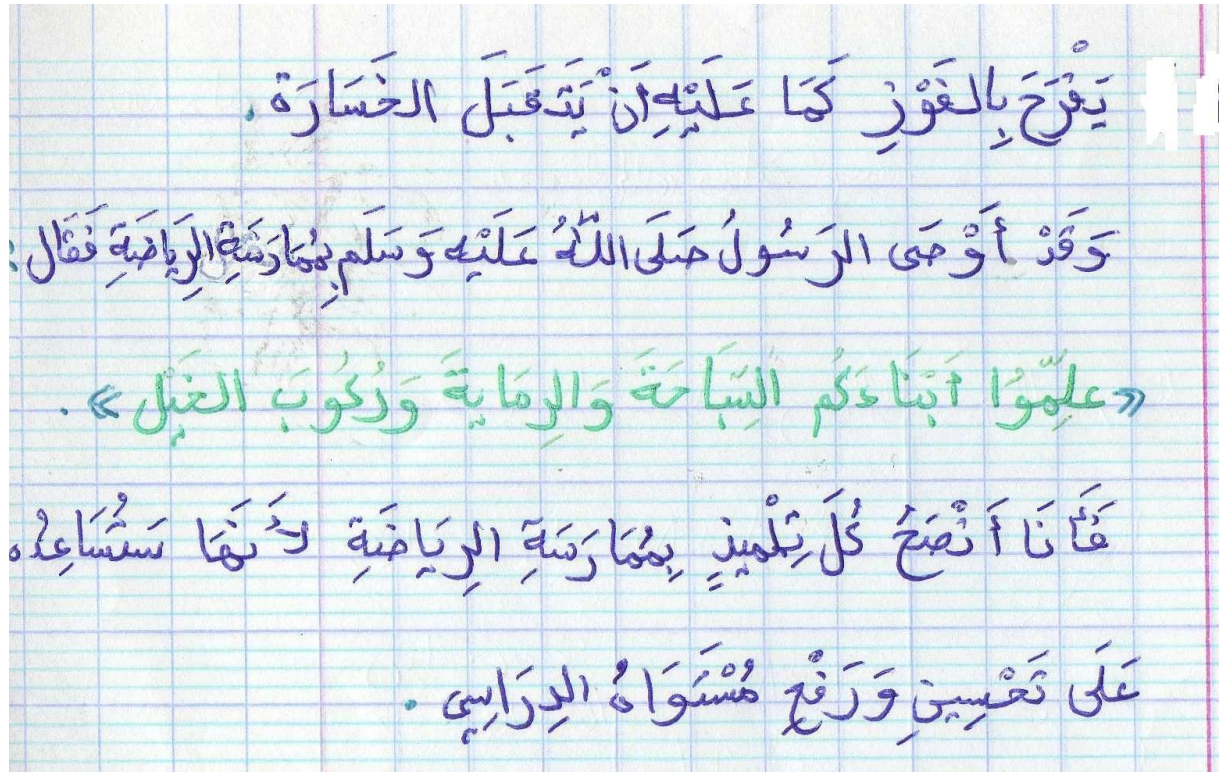 يَفْرَحَ بِالفَوْزِ كَمَا عَلَيْهِ أَنْ يَتَقَبَلَ الخَسَارَة.
وَقَدْ أَوْصَى الرَسُولُ صَلَى اللّهُ عَلَيْهِ وَسَلَم بِمُمَارَسَةِ الرِيَاضَةِ فَقَال :
«علِّمُوا أَبْنَاءَكُم السِّبَاحَةَ وَالرِمَايةَ وَرُكُوبَ الخَيْل».
فَأَنَا أَنْصَحُ كُلَ تِلْمِيذٍ بِمُمَارَسَةِ الرِيَاضَةِ لأَنَهَا سَتُسَاعِدُه
عَلَى تَحْسِينِ وَرَفْعِ مُسْتَوَاهُ الدِرَاسِي .